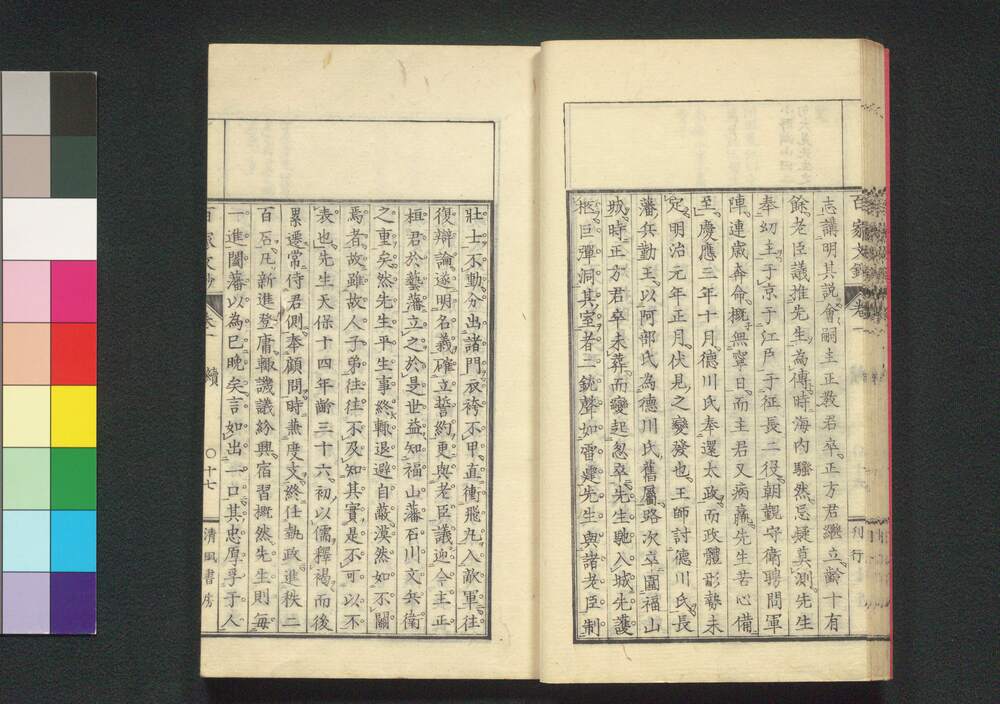 百家文鈔 卷一 刊行
志講明其説會嗣主正教君卒正方君繼立齡十有
餘老臣議推先生為傅時海内騷然忌疑莫測先生
奉幼主于京于江戸于征長二役朝覲守衛聘問軍
陣連歳奔命概無寧日而主君又病羸先生苦心備
至慶應三年十月德川氏奉還太政而政體形勢未
定明治元年正月伏見之變發也王師討德川氏長
藩兵勤王以阿部氏為德川氏舊屬路次卒圍福山
城時正方君卒未葬而變起怱卒先生馳入城先護
柩巨彈洞其室者二銃聲如雷霆先生與諸老臣制
壯士不動分出諸門衣袴不甲直衝飛丸入敵軍往
復辯論遂明名義確立誓約更與老臣議迎今主正
桓君於藝藩立之於是世益知福山藩石川文兵衛
之重矣然先生平生事終輙退避自蔽漠然如不關
焉者故雖故人子弟往往不及知其實是不可以不
表也先生天保十四年齡三十六初以儒釋褐而後
累遷常侍君側牽顧問時兼度支終任執政進秩二
百石凡新進登庸輙譏議紛興宿習概然先生則毎
一進闔藩以為已晩矣言如出一口其忠厚孚于人
百家文鈔 卷一 續 〇十七 清風書房